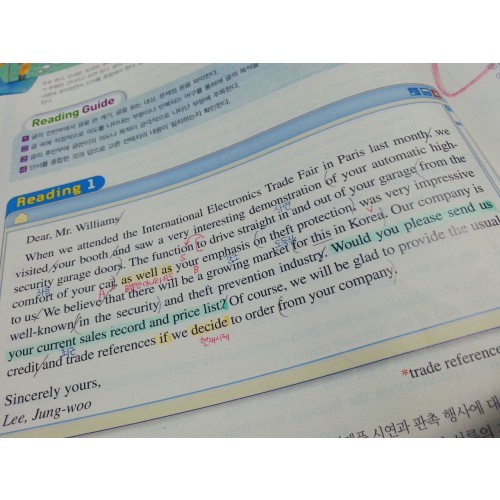 Reading Guide
1 글의 전반부에서 글을 쓴 계기, 글을 읽는 대상, 문제점 등을 파악한다.
2 글 속에 직접적으로 의도를 나타내는 부분이나 반복되는 어구를 통하여 글의 목적을
3 글의 후반부에 글쓴이의 의도나 목적이 궁극적으로 나타난 부분에 주목한다.
4 단서를 종합한 것에 답으로 고른 선택지의 내용이 일치하는지 확인한다.
Reading 1
Dear, Mr. Williams
When we attended the International Electronics Trade Fair in Paris last month, we
visited your booth and saw a very interesting demonstration of your automatic high-
security garage door. The function to drive straight in and out of your garage from the
comfort of your car, as well as your emphasis on theft protection, was very impressive
to us. We believe that there will be a growing market for this in Korea. Our company is
well-known in the security and theft prevention industry. Would you please send us
your current sales record and price list? Of course, we will be glad to provide the usual
credit and trade references if we decide to order from your company.
현재시제
Sincerely yours,
Lee, Jung-woo
*trade reference
시연과 판촉 행사에 대